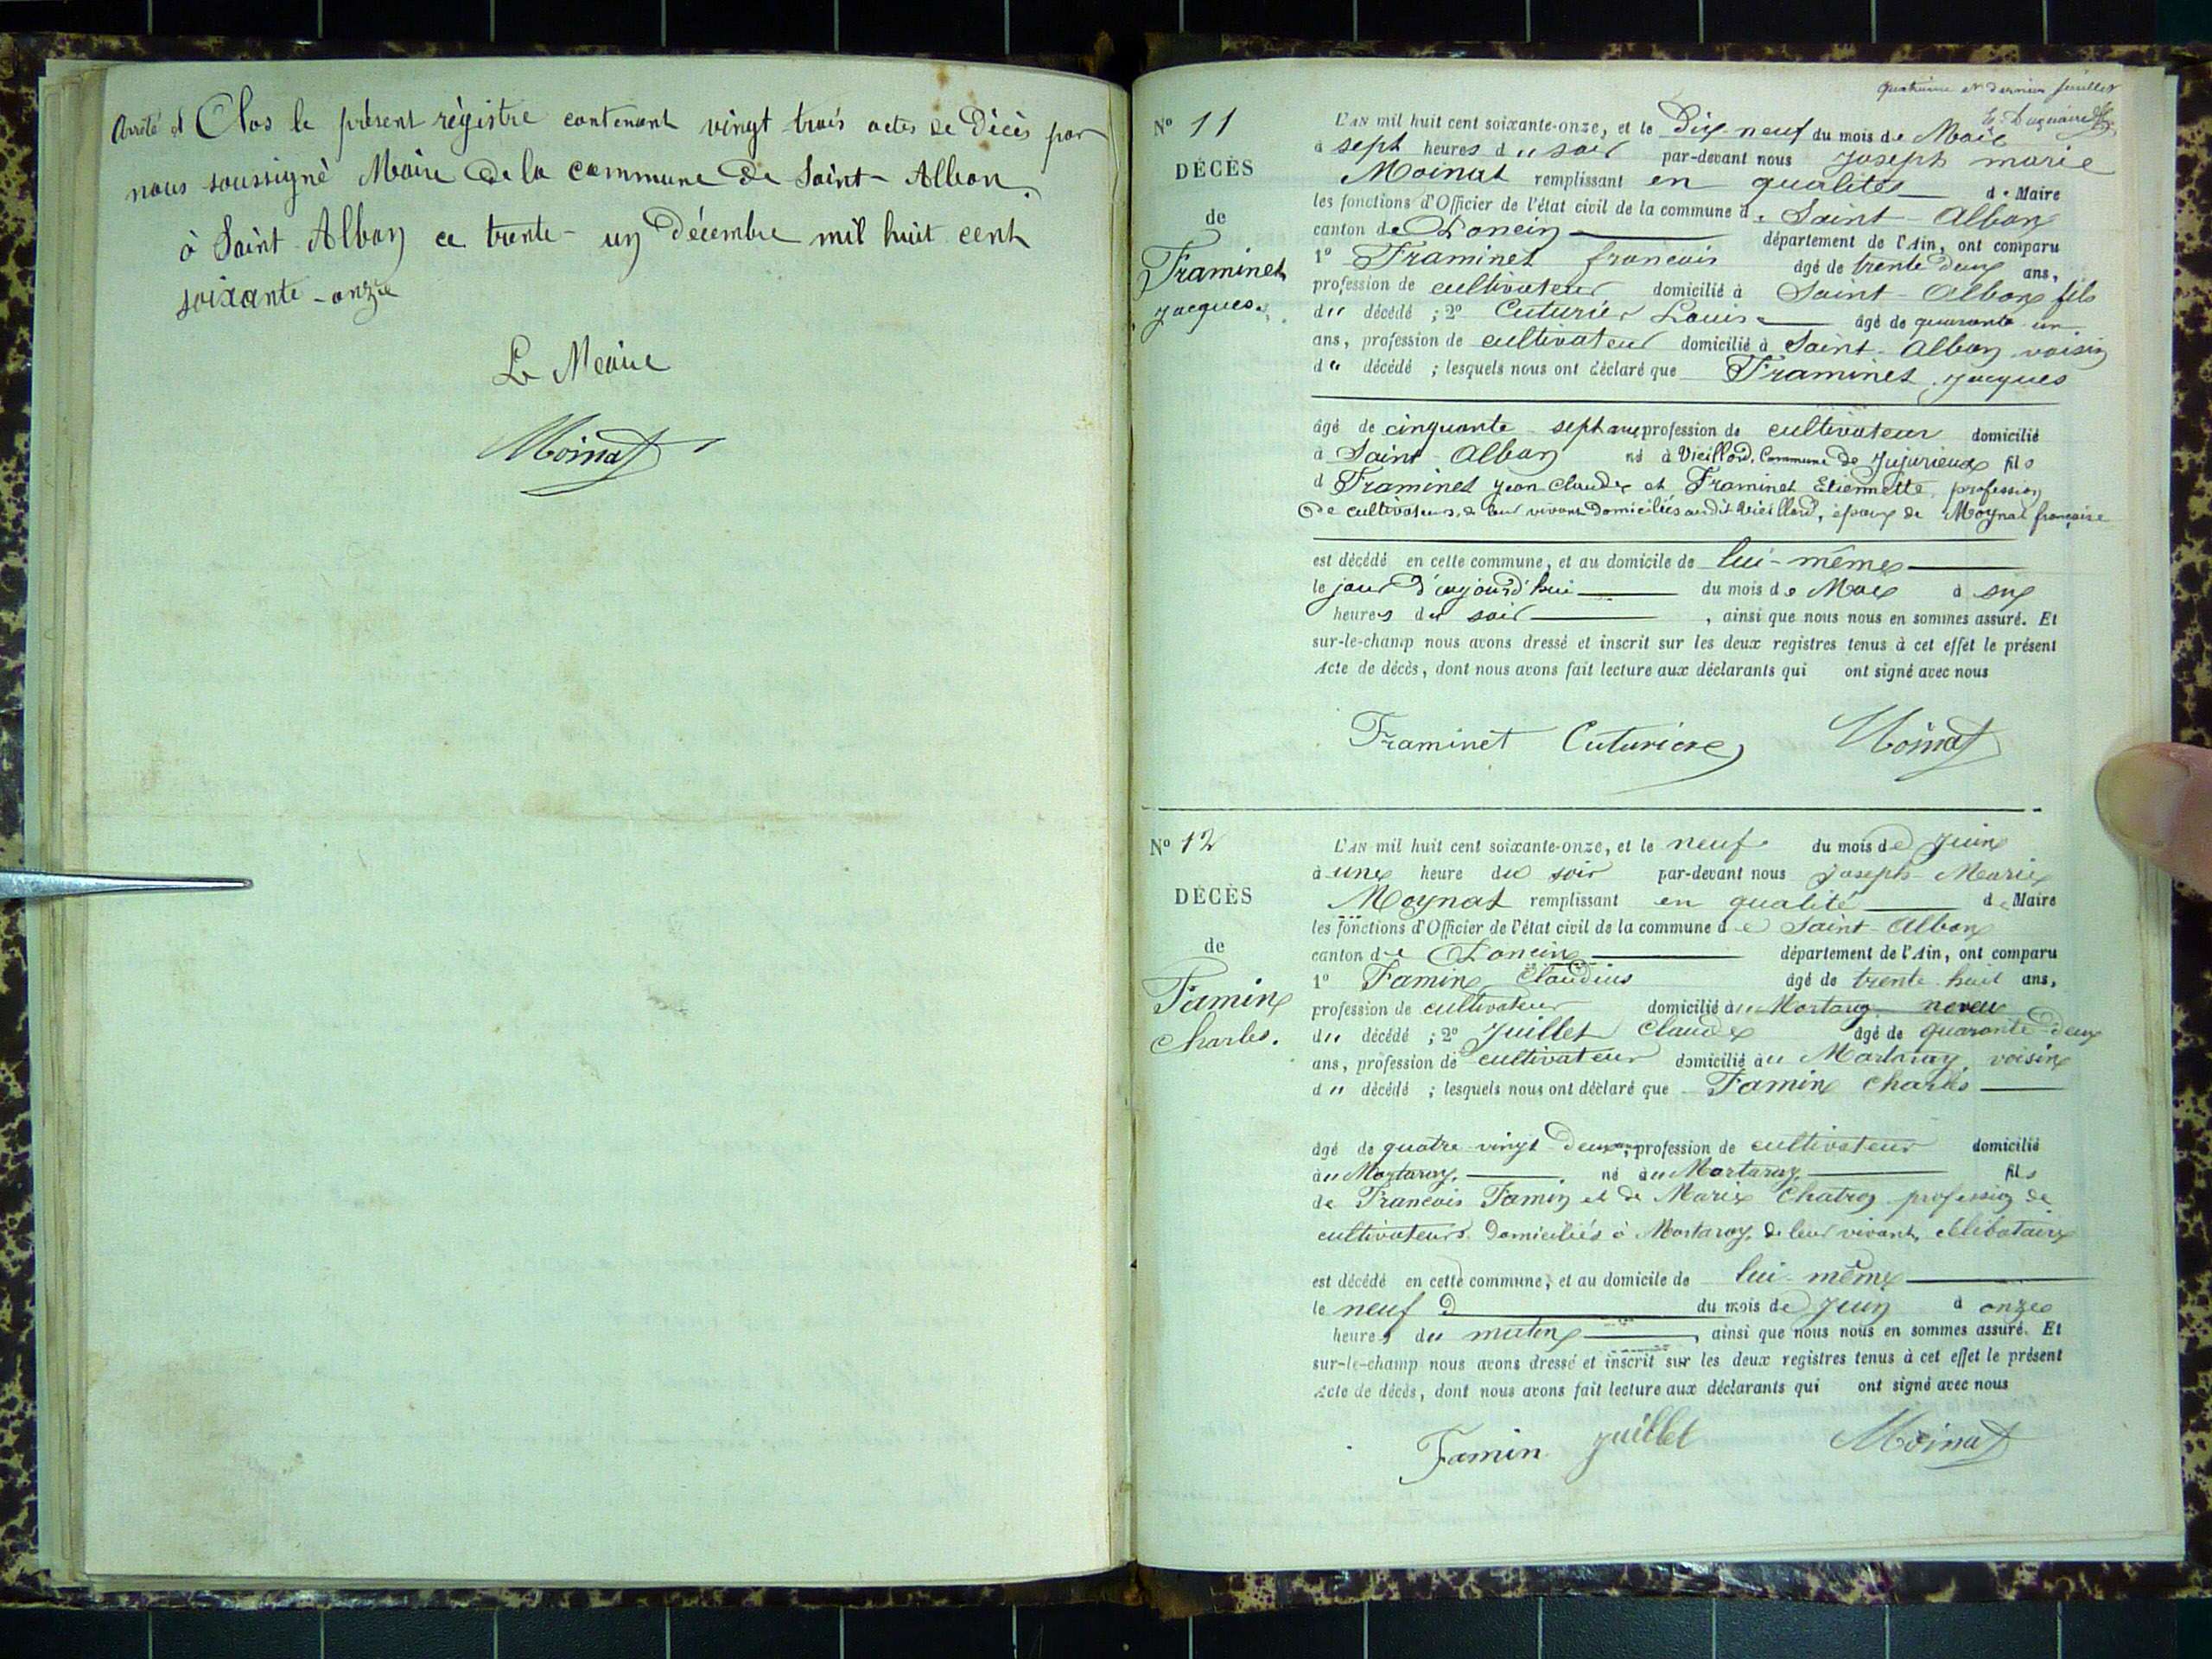 Arrêté et Clos le présent règistre contenant vingt trois actes de Décès par
nous soussigné Maire de la commune de Saint-Alban.
à Saint-Alban ce trente-un Décembre mil huit cent
soixante-onze
Le Maire
Moinat
quatrième et dernier feuillet
N° 11
DÉCÈS
de
Framinet
Jacques.
L'AN mil huit cent soixante-onze, et le Dix neuf du mois de Mai
à sept heures du soir par-devant nous Joseph marie
Moinat remplissant en qualités de Maire
les fonctions d'Officier de l'état civil de la commune de Saint-Alban
canton de Poncin département de l'Ain, ont comparu
1° Framinet francois âgé de trente deux ans,
profession de cultivateur domicilié à Saint-Alban fils
du décédé ; 2° Cuturier Louis âgé de quarante un
ans, profession de cultivateur domicilié à Saint-Alban voisin
du décédé ; lesquels nous ont déclaré que Framinet Jacques
âgé de cinquante sept ans profession de cultivateur domicilié
à Saint-Alban né à Vieillard, Commune de Jujurieux fils
d Framinet Jean Claude et Framinet Etiennette, profession
De cultivateurs, de leur vivant Domiciliés audit Vieillard, époux de Moynat françoise
est décédé en cette commune, et au domicile de lui-même
le jour d'aujourd'hui du mois de Mai à six
heures du soir , ainsi que nous nous en sommes assuré. Et
sur-le-champ nous avons dressé et inscrit sur les deux registres tenus à cet effet le présent
Acte de décès, dont nous avons fait lecture aux déclarants qui ont signé avec nous
Framinet Cuturier Moinat
N° 12
DÉCÈS
de
Famin
Charles.
L'AN mil huit cent soixante-onze, et le neuf du mois de Juin
à une heure du soir par-devant nous Joseph-Marie
Moynat remplissant en qualité de Maire
les fonctions d'Officier de l'état civil de la commune de Saint-Alban
canton de Poncin département de l'Ain, ont comparu
1° Famin Claudius âgé de trente huit ans,
profession de cultivateur domicilié au Mortaray, neveu
du décédé ; 2° Juillet Claude âgé de quarante Deux
ans, profession de cultivateur domicilié au Mortaray, voisin
du décédé ; lesquels nous ont déclaré que Famin Charles
âgé de quatre-vingt Deux ans, profession de cultivateur domicilié
au Mortaray, né au Mortaray, fils
de Francois Famin et de Marie Chatron profession de
cultivateurs Domiciliés à Mortaray, de leur vivant, célibataire
est décédé en cette commune, et au domicile de lui-même
le neuf d du mois de Juin à onze
heures du matin , ainsi que nous nous en sommes assuré. Et
sur-le-champ nous avons dressé et inscrit sur les deux registres tenus à cet effet le présent
Acte de décès, dont nous avons fait lecture aux déclarants qui ont signé avec nous
Famin Juillet Moinat